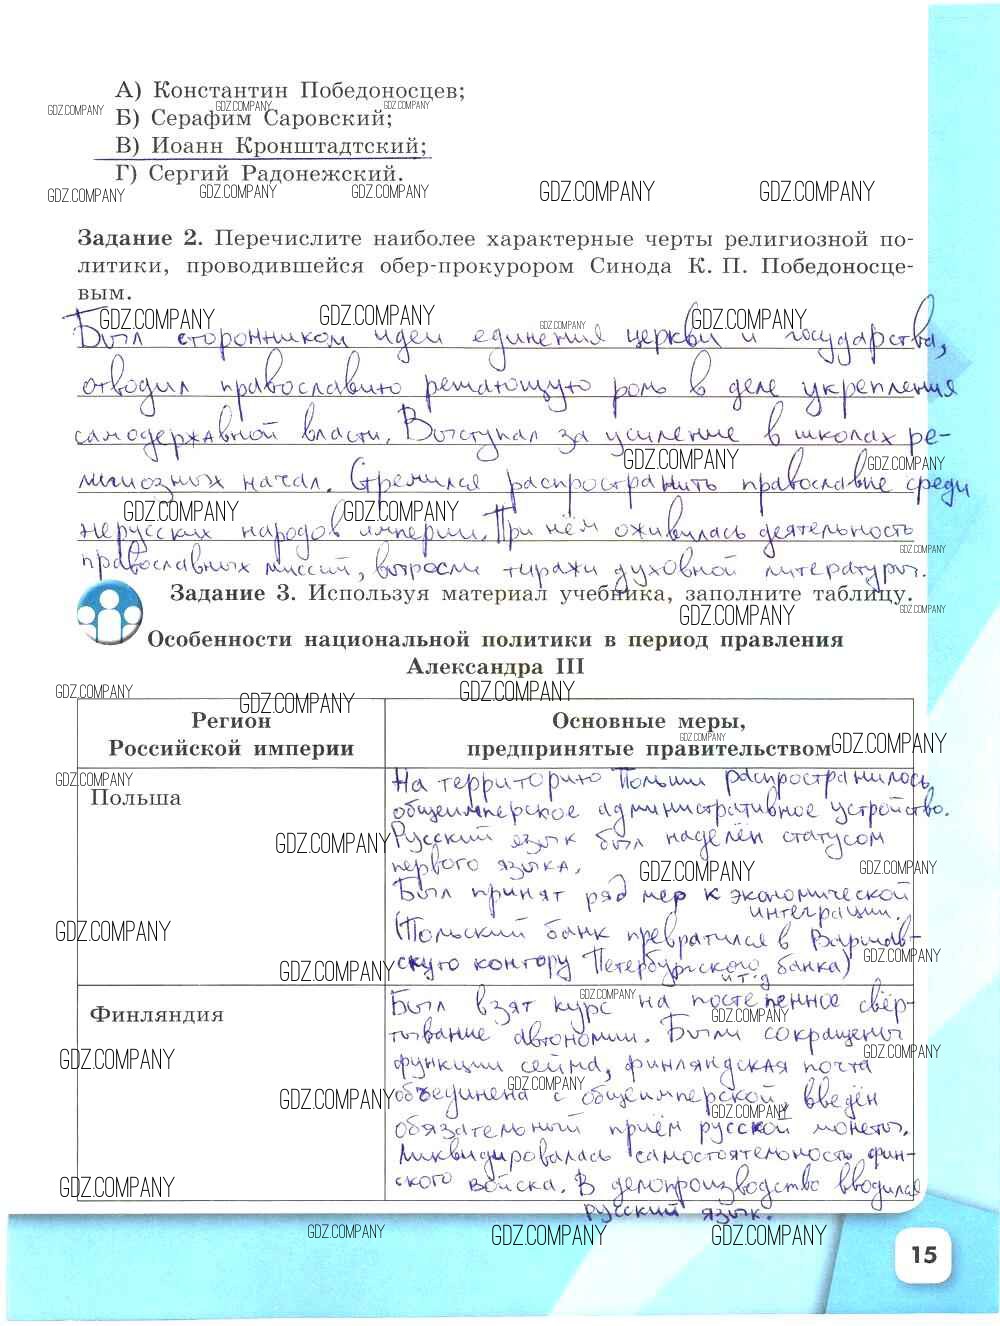 А) Константин Победоносцев;
Б) Серафим Саровский;
В) Иоанн Кронштадтский;
Г) Сергий Радонежский.
Задание 2. Перечислите наиболее характерные черты религиозной по-
литики, проводившейся обер-прокурором Синода К. П. Победоносце-
вым.
Был сторонником идеи единения церкви и государства,
отводил православию решающую роль в деле укрепления
самодержавной власти. Выступал за усиление в школах ре-
лигиозных начал. Стремился распространить православие среди
нерусских народов империи. При нём оживилась деятельность
православных миссий, выросли тиражи духовной литературы.
Задание 3. Используя материал учебника, заполните таблицу.
Особенности национальной политики в период правления
Александра III
Регион
Российской империи
Основные меры,
предпринятые правительством
Польша
На территорию Польши распространилось
общеимперское административное устройство.
Русский язык был наделён статусом
первого языка.
Был принят ряд мер к экономической
интеграции.
(Польский банк превратился в Варшав-
скую контору Петербургского банка)
и т.д
Финляндия
Был взят курс на постепенное свёр-
тывание автономии. Были сокращены
функции сейма, финляндская почта
объединена с общеимперской, введён
обязательный приём русской монеты.
Ликвидировалась самостоятельность фин-
ского войска. В делопроизводство вводился
русский язык.
15
GDZ.COMPANY